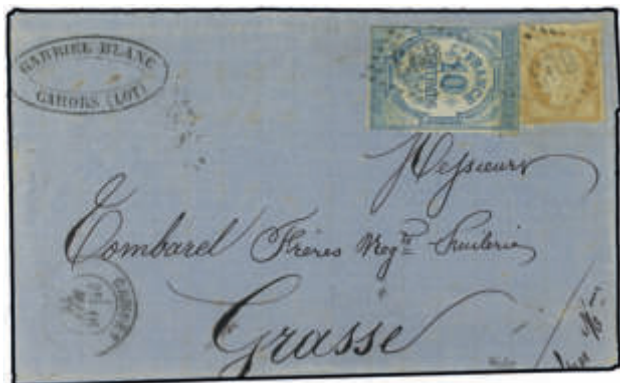 GABRIEL BLANC
CAHORS (LOT)
FRANCE
10
CENTIMES
Messieurs
Tombarel Frères Negts Huilerie
CAHORS
Grasse